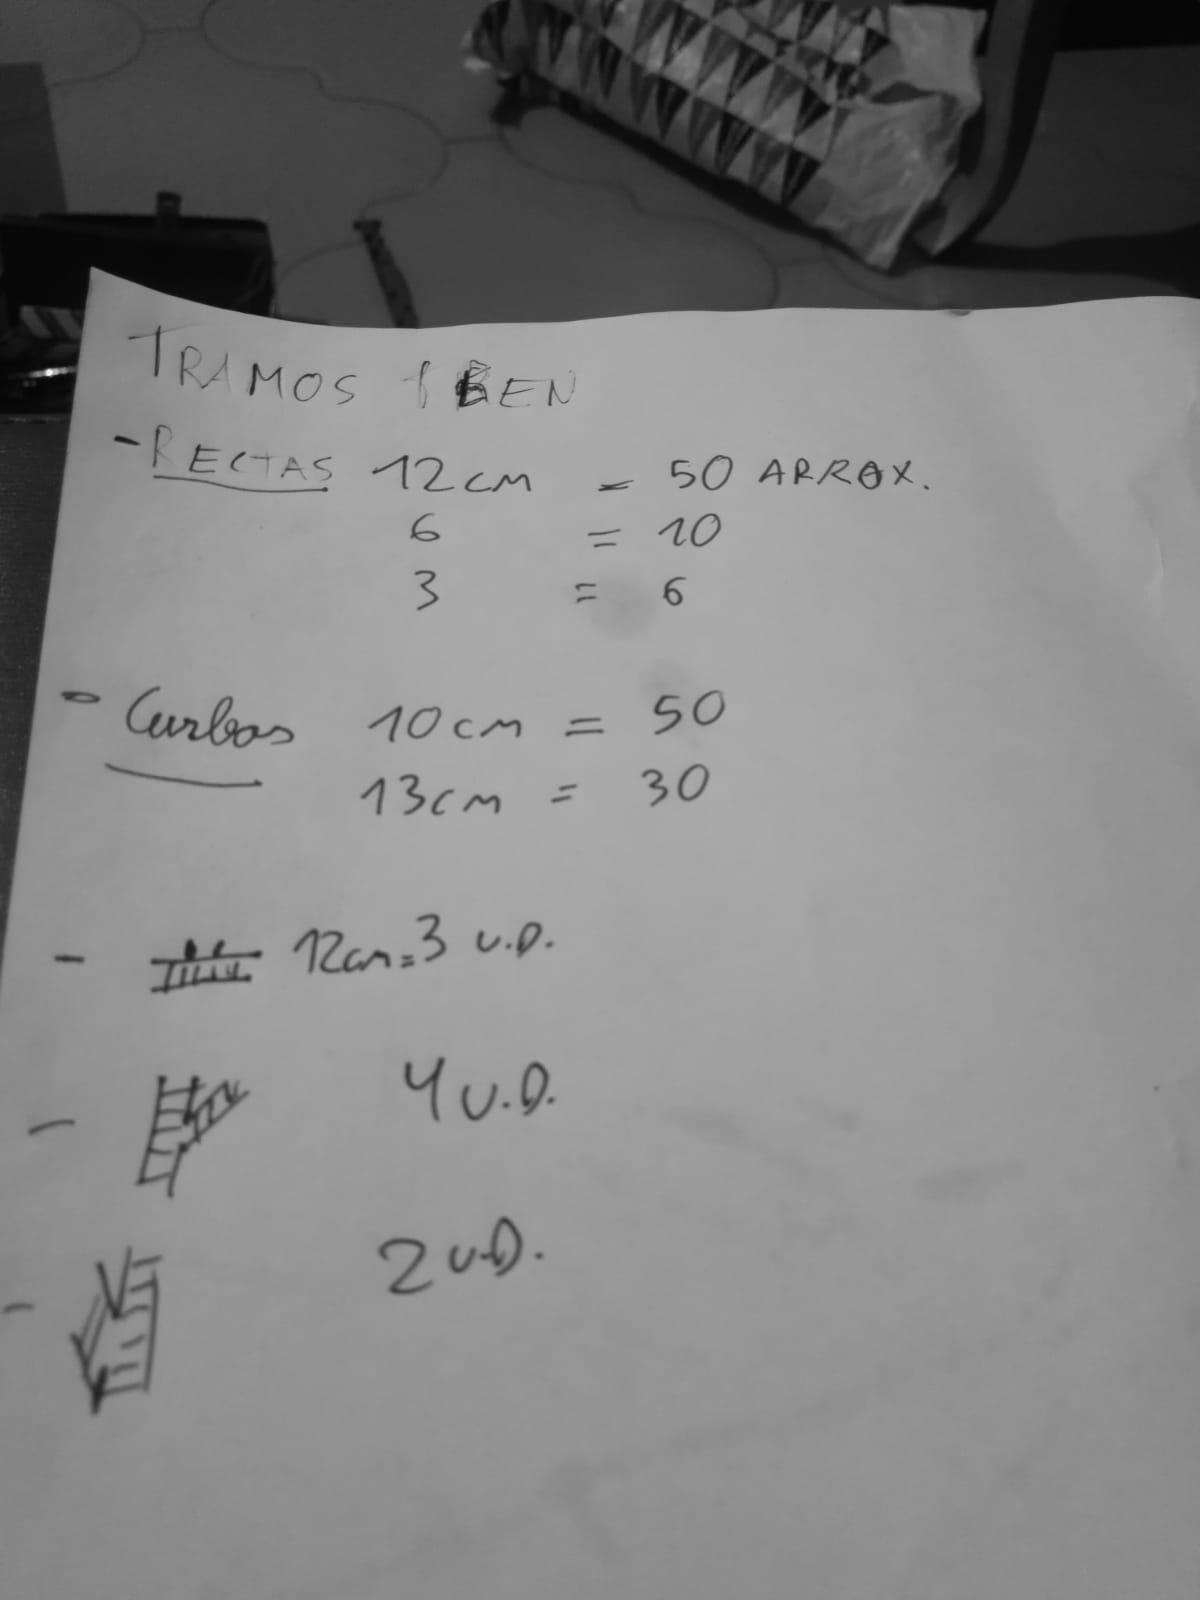 TRAMOS
- RECTAS 12cm = 50 ARROX.
6 = 10
3 = 6
- Curbas 10cm = 50
13cm = 30
- 12cm = 3 U.D.
- 4 U.D.
- 2 U.D.